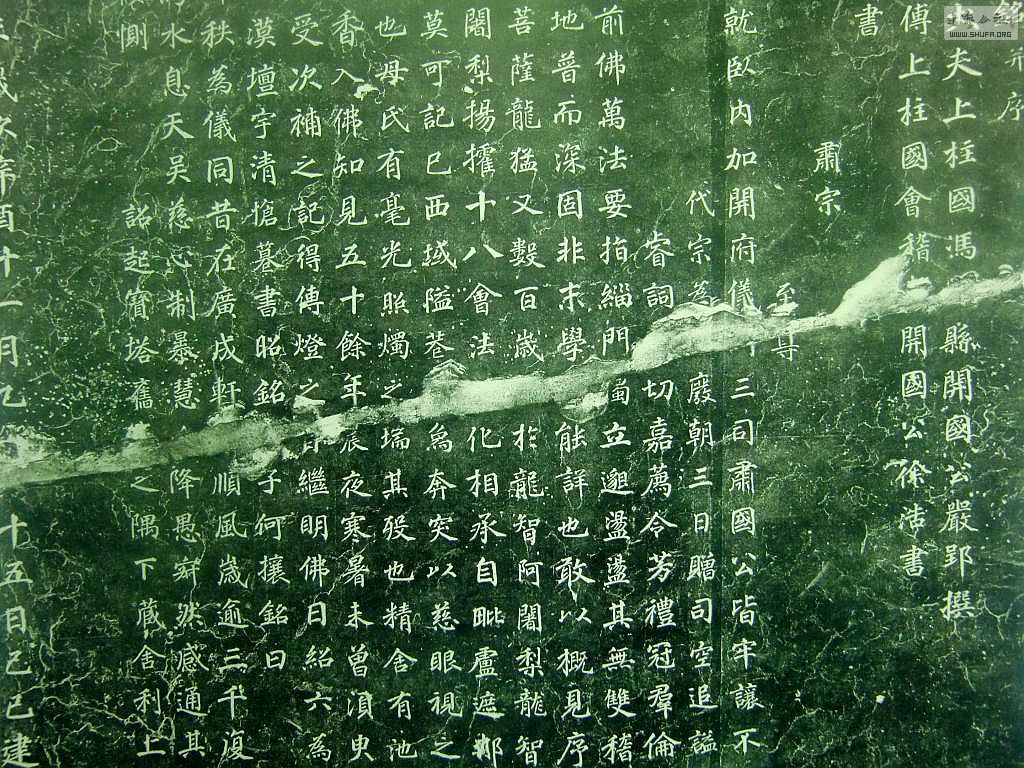 序
夫上柱國馮縣開國公嚴郢撰
傅上柱國會稽開國公徐浩書
書
肅宗
至尊
就臥內加開府儀三司肅國公皆牢讓不
代宗為廢朝三日贈司空追謚
睿詞切嘉薦令芳禮冠羣倫
前佛萬法要指緇門蜀立邈盪盪其無雙稽
地普而深固非末學能詳也敢以概見序
菩薩龍猛又數百歲於龍智阿闍梨龍智
闍梨揚攉十八會法化相承自毗盧遮那
莫可記已西域隘巷為奔突以慈眼視之
也母氏有毫光照燭之瑞其歿也精舍有池
香入佛知見五十餘年晨夜寒暑未曾須臾
受次補之記得傳燈之旨繼明佛日紹六為
漠壇宇清愴纂書昭銘子何攘銘曰
秩為儀同昔在廣成軒順風歲逾三千復
水息天吳慈心制暴慧降愚寂然感通其
惻詔起寶塔舊之隅下藏舍利上
歲次辛酉十一月乙十五日己巳建
WWW.SHUFA.ORG